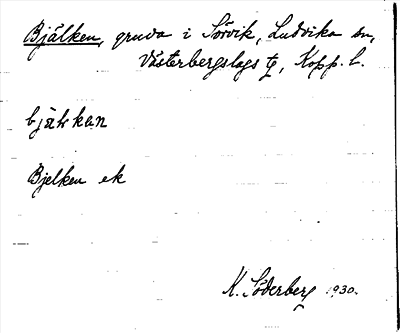 Bjälken, gruva i Sörvik, Ludvika sn,
Västerbergslags tg, Kopp. l.
bjäkkan
Bjelken ek
K. Söderberg 1930.